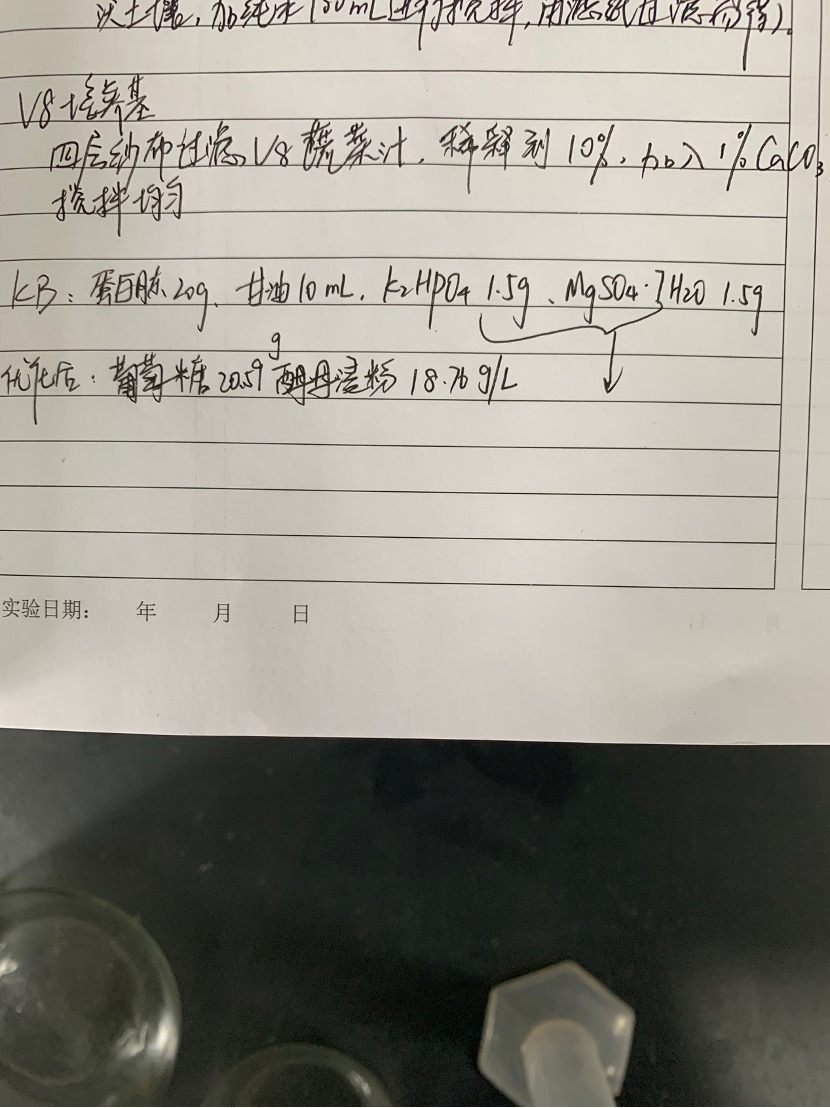 次土壤，加纯水150mL进行搅拌，用滤纸过滤备锗）。
V8培养基
四层纱布过滤V8蔬菜汁，稀释到10%，加入1%CaCO3
搅拌均匀
KB：蛋白胨20g、甘油10mL、K2HPO4 1.5g、MgSO4·7H2O 1.5g
g
优化后：葡萄糖20.59 酵母浸粉 18.76 g/L
实验日期： 年 月 日